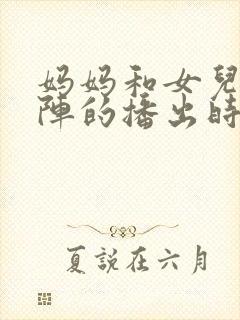 妈妈和女兒
陣的播出時
夏説在六月